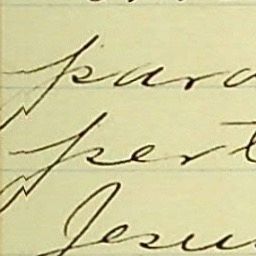 para
pert
Jesu